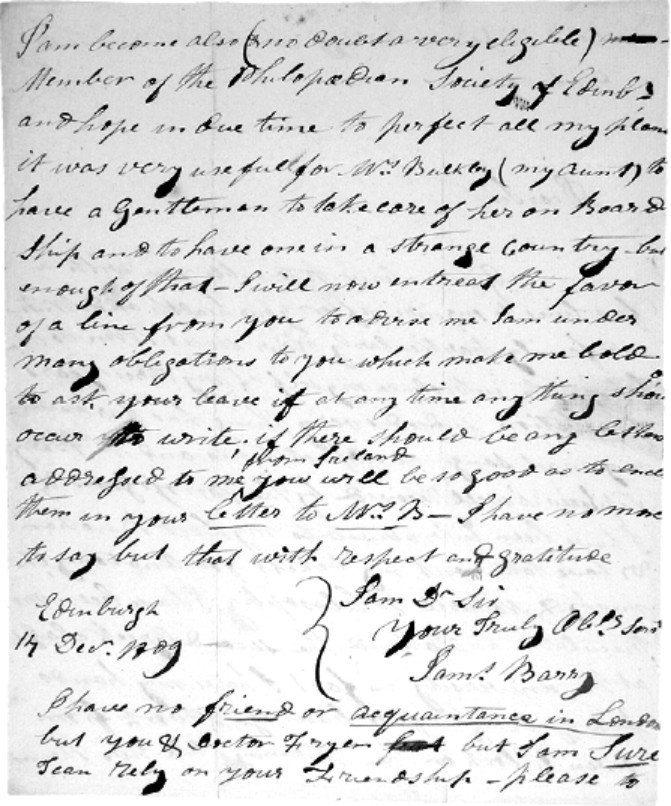 I am become also (no doubt a very eligible)
Member of the Philopædian Society of Edinbr
and hope in due time to perfect all my plans
it was very usefull for Mrs Bulkley (my aunt) to
have a Gentleman to take care of her on Board
Ship and to have one in a strange Country but
enough of that - I will now entreat the favor
of a line from you to advise me I am under
many obligations to you which make me bold
to ask your leave if at any time any thing shou
occur to write. if there should be any letters
from Ireland
addressed to me you will be so good as to encl
them in your letter to Mrs B - I have no more
to say but that with respect and gratitude
I am Dr Sir
Edinburgh
Your Truly Obt Servt
14 Decr 1809
Jams Barry
I have no friend or acquaintance in London
but you & Doctor Fryer but I am Sure
I can rely on your Friendship - please to